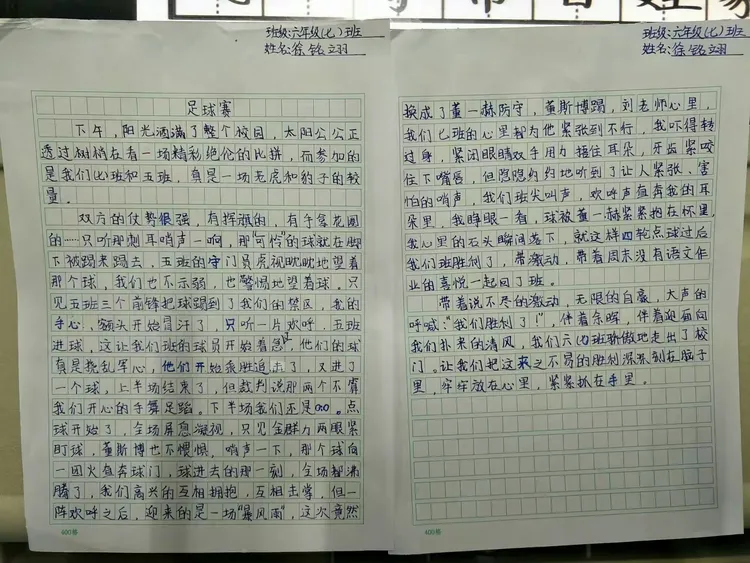 班级:六年级(七)班
姓名:徐铭立羽
足球赛
下午,阳光洒满了整个校园,太阳公公正
透过树梢在看一场精彩绝伦的比拼,而参加的
是我们七班和五班,真是一场老虎和豹子的较
量。
双方的仗势很强,有挥旗的,有手拿花圈
的……只听那刺耳哨声一响,那"可怜"的球就在脚
下被踢来踢去,五班的守门员虎视眈眈地望着
那个球,我们也不示弱,也警惕地望着球。只
见五班三个前锋把球踢到了我们的禁区,我的
手心、额头开始冒汗了,只听一片欢呼,五班
进球,这让我们班的球员开始着急,他们的球
真是扰乱军心,他们开始乘胜追击了,又进了
一个球,上半场结束了,但裁判说那两个不算
我们开心的手舞足蹈。下半场我们还是0:0。点
球开始了,全场屏息凝视,只见金群力两眼紧
盯球,董斯博也不惧惧,哨声一下,那个球向
一团火直奔球门,球进去的那一刻,全场都沸
腾了,我们高兴的互相拥抱,互相击掌,但一
阵欢呼之后,迎来的是一场"暴风雨",这次竟然
400格
班级:六年级(七)班
姓名:徐铭立羽
换成了董一赫防守,董斯博踢,刘老师心里,
我们七班的心里都为他紧张到不行,我吓得转
过身,紧闭眼睛双手用力捂住耳朵,牙齿紧咬
住下嘴唇,但隐隐约约地听到了让人紧张、害
怕的哨声,我们班尖叫声,欢呼声直奔我的耳
朵里,我睁眼一看,球被董一赫紧紧抱在怀里,
我心里的石头瞬间落下,就这样四轮点球过后
我们班胜利了,带激动,带着周末没有语文作
业的喜悦一起回了班。
带着说不尽的激动,无限的自豪,大声的
呼喊:"我们胜利了!",伴着余晖,伴着迎面向
我们扑来的清风,我们六(七)班骄傲地走出了校
门。让我们把这来之不易的胜利深深刻在脑子
里,牢牢放在心里,紧紧抓在手里。
400格